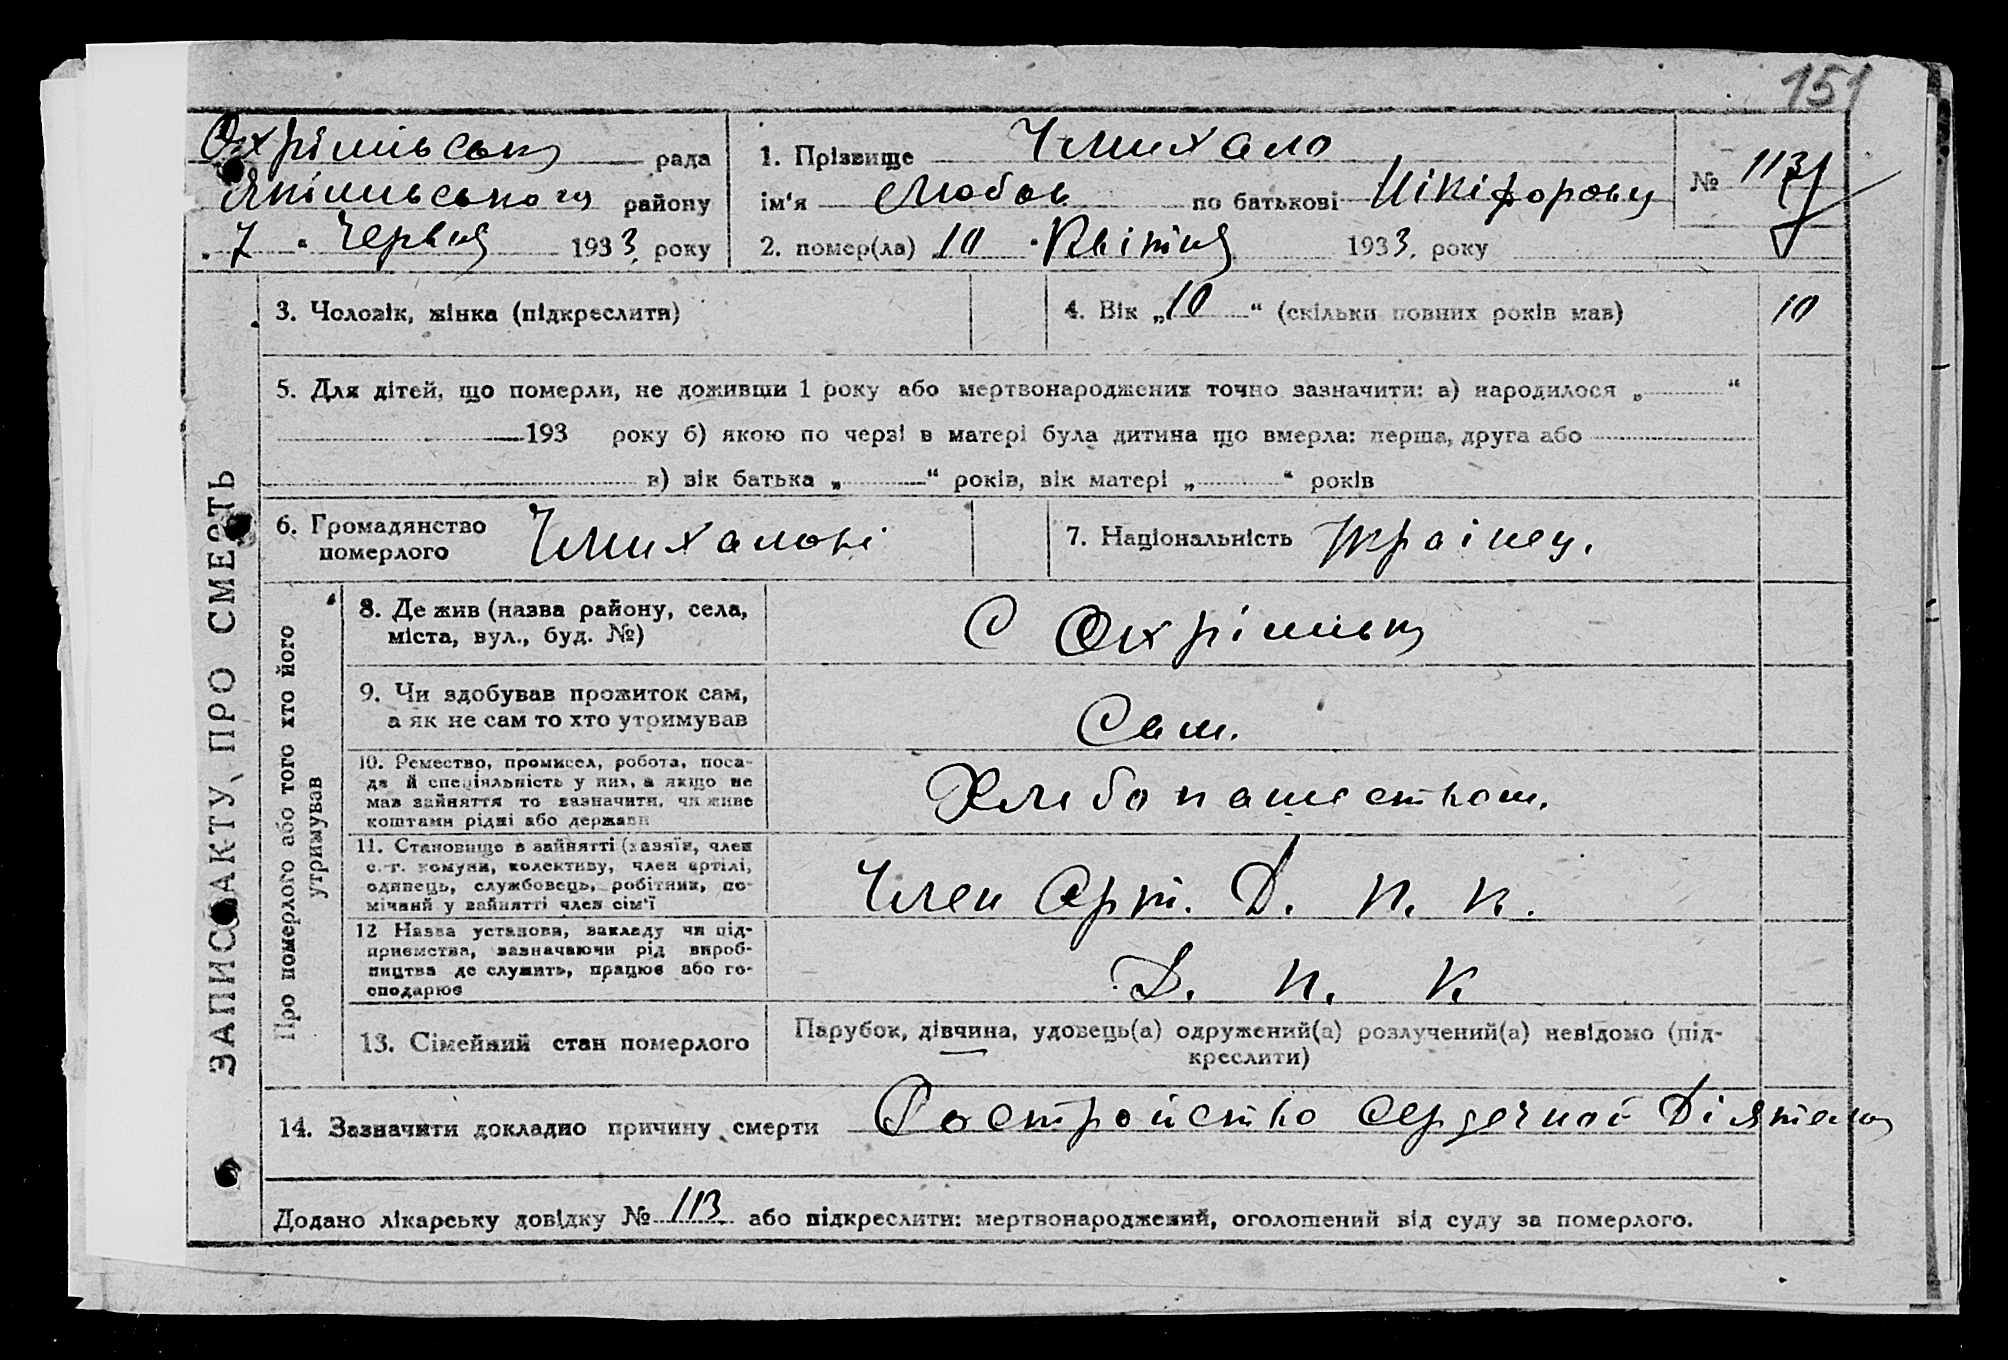 151
Охрімівська рада
Якімівського району
„ 7 “ Червня 1933 року
1. Прізвище Чмихало
ім'я Любов по батькові Нікіфоровна
2. помер(ла) 10 Квітня 1933 року
№ 113
3. Чоловік, жінка (підкреслити)
4. Вік „10“ (скільки повних років мав)
10
5. Для дітей, що померли, не доживши 1 року або мертвонароджених точно зазначити: а) народилося „ “
193 року б) якою по черзі в матері була дитина що вмерла: перша, друга або
в) вік батька „ “ років, вік матері „ “ років
6. Громадянство
померлого
7. Національність Украінец.
ЗАПИС АКТУ ПРО СМЕРТЬ
Про померлого або того хто його
утримував
8. Де жив (назва району, села,
міста, вул., буд. №)
С Охрімівка
9. Чи здобував прожиток сам,
а як не сам то хто утримував
Сам.
10. Ремество, промисел, робота, поса-
да й спеціяльність у них, а якщо не
мав зайняття то зазначити, чи живе
коштами рідні або держави
Хлибопашеством.
11. Становище в зайнятті (хазяїн, член
с.-г. комуни, колективу, член артілі,
одинець, службовець, робітник, по-
мічний у зайнятті член сім'ї
Член Арт. Д. Н. К.
12 Назва установи, закладу чи під-
приємства, зазначаючи рід вироб-
ництва де служить, працює або го-
сподарює
Д. Н. К
13. Сімейний стан померлого
Парубок, дівчина, удовець(а) одружений(а) розлучений(а) невідомо (під-
креслити)
14. Зазначити докладно причину смерти Растройство сердечной
Додано лікарську довідку № 113 або підкреслити: мертвонароджений, оголошений від суду за померлого.